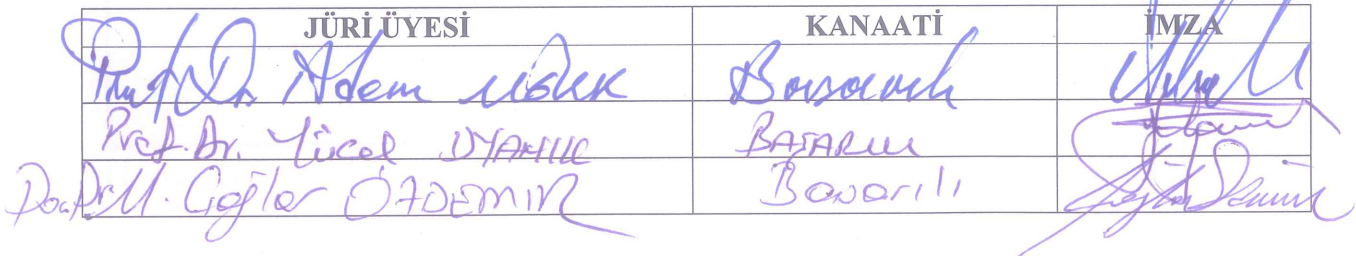 JÜRİ ÜYESİ KANAATİ İMZA
Prof. Dr. Adem Başarılı
Prof. Dr. Yücel UYANIK BAŞARILI
Doç. Dr. M. Çağlar ÖZDEMİR Başarılı